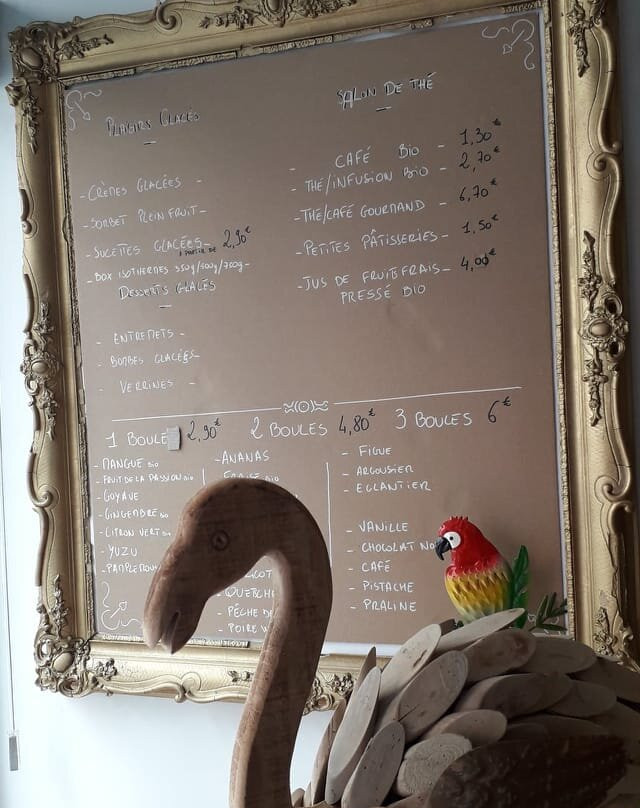 PLAISIRS GLACÉS
- CRÈMES GLACÉES -
- SORBET PLEIN FRUIT -
- SUCETTES GLACÉES - À PARTIR DE 2,90€
- BOX ISOTHERMES 350g/500g/700g -
DESSERTS GLACÉS
- ENTREMETS -
- BOMBES GLACÉES
- VERRINES -
SALON DE THÉ
- CAFÉ BIO - 1,30€
- THÉ/INFUSION BIO - 2,70€
- THÉ/CAFÉ GOURMAND - 6,70€
- PETITES PÂTISSERIES - 1,50€
- JUS DE FRUITS FRAIS - 4,00€
PRESSÉ BIO
1 BOULE 2,90€ 2 BOULES 4,80€ 3 BOULES 6€
- MANGUE BIO
- FRUIT DE LA PASSION BIO
- GOYAVE
- GINGEMBRE BIO
- CITRON VERT BIO
- YUZU
- ANANAS
- PÊCHE DE
- POIRE
- FIGUE
- ARGOUSIER
- EGLANTIER
- VANILLE
- CHOCOLAT
- CAFÉ
- PISTACHE
- PRALINE